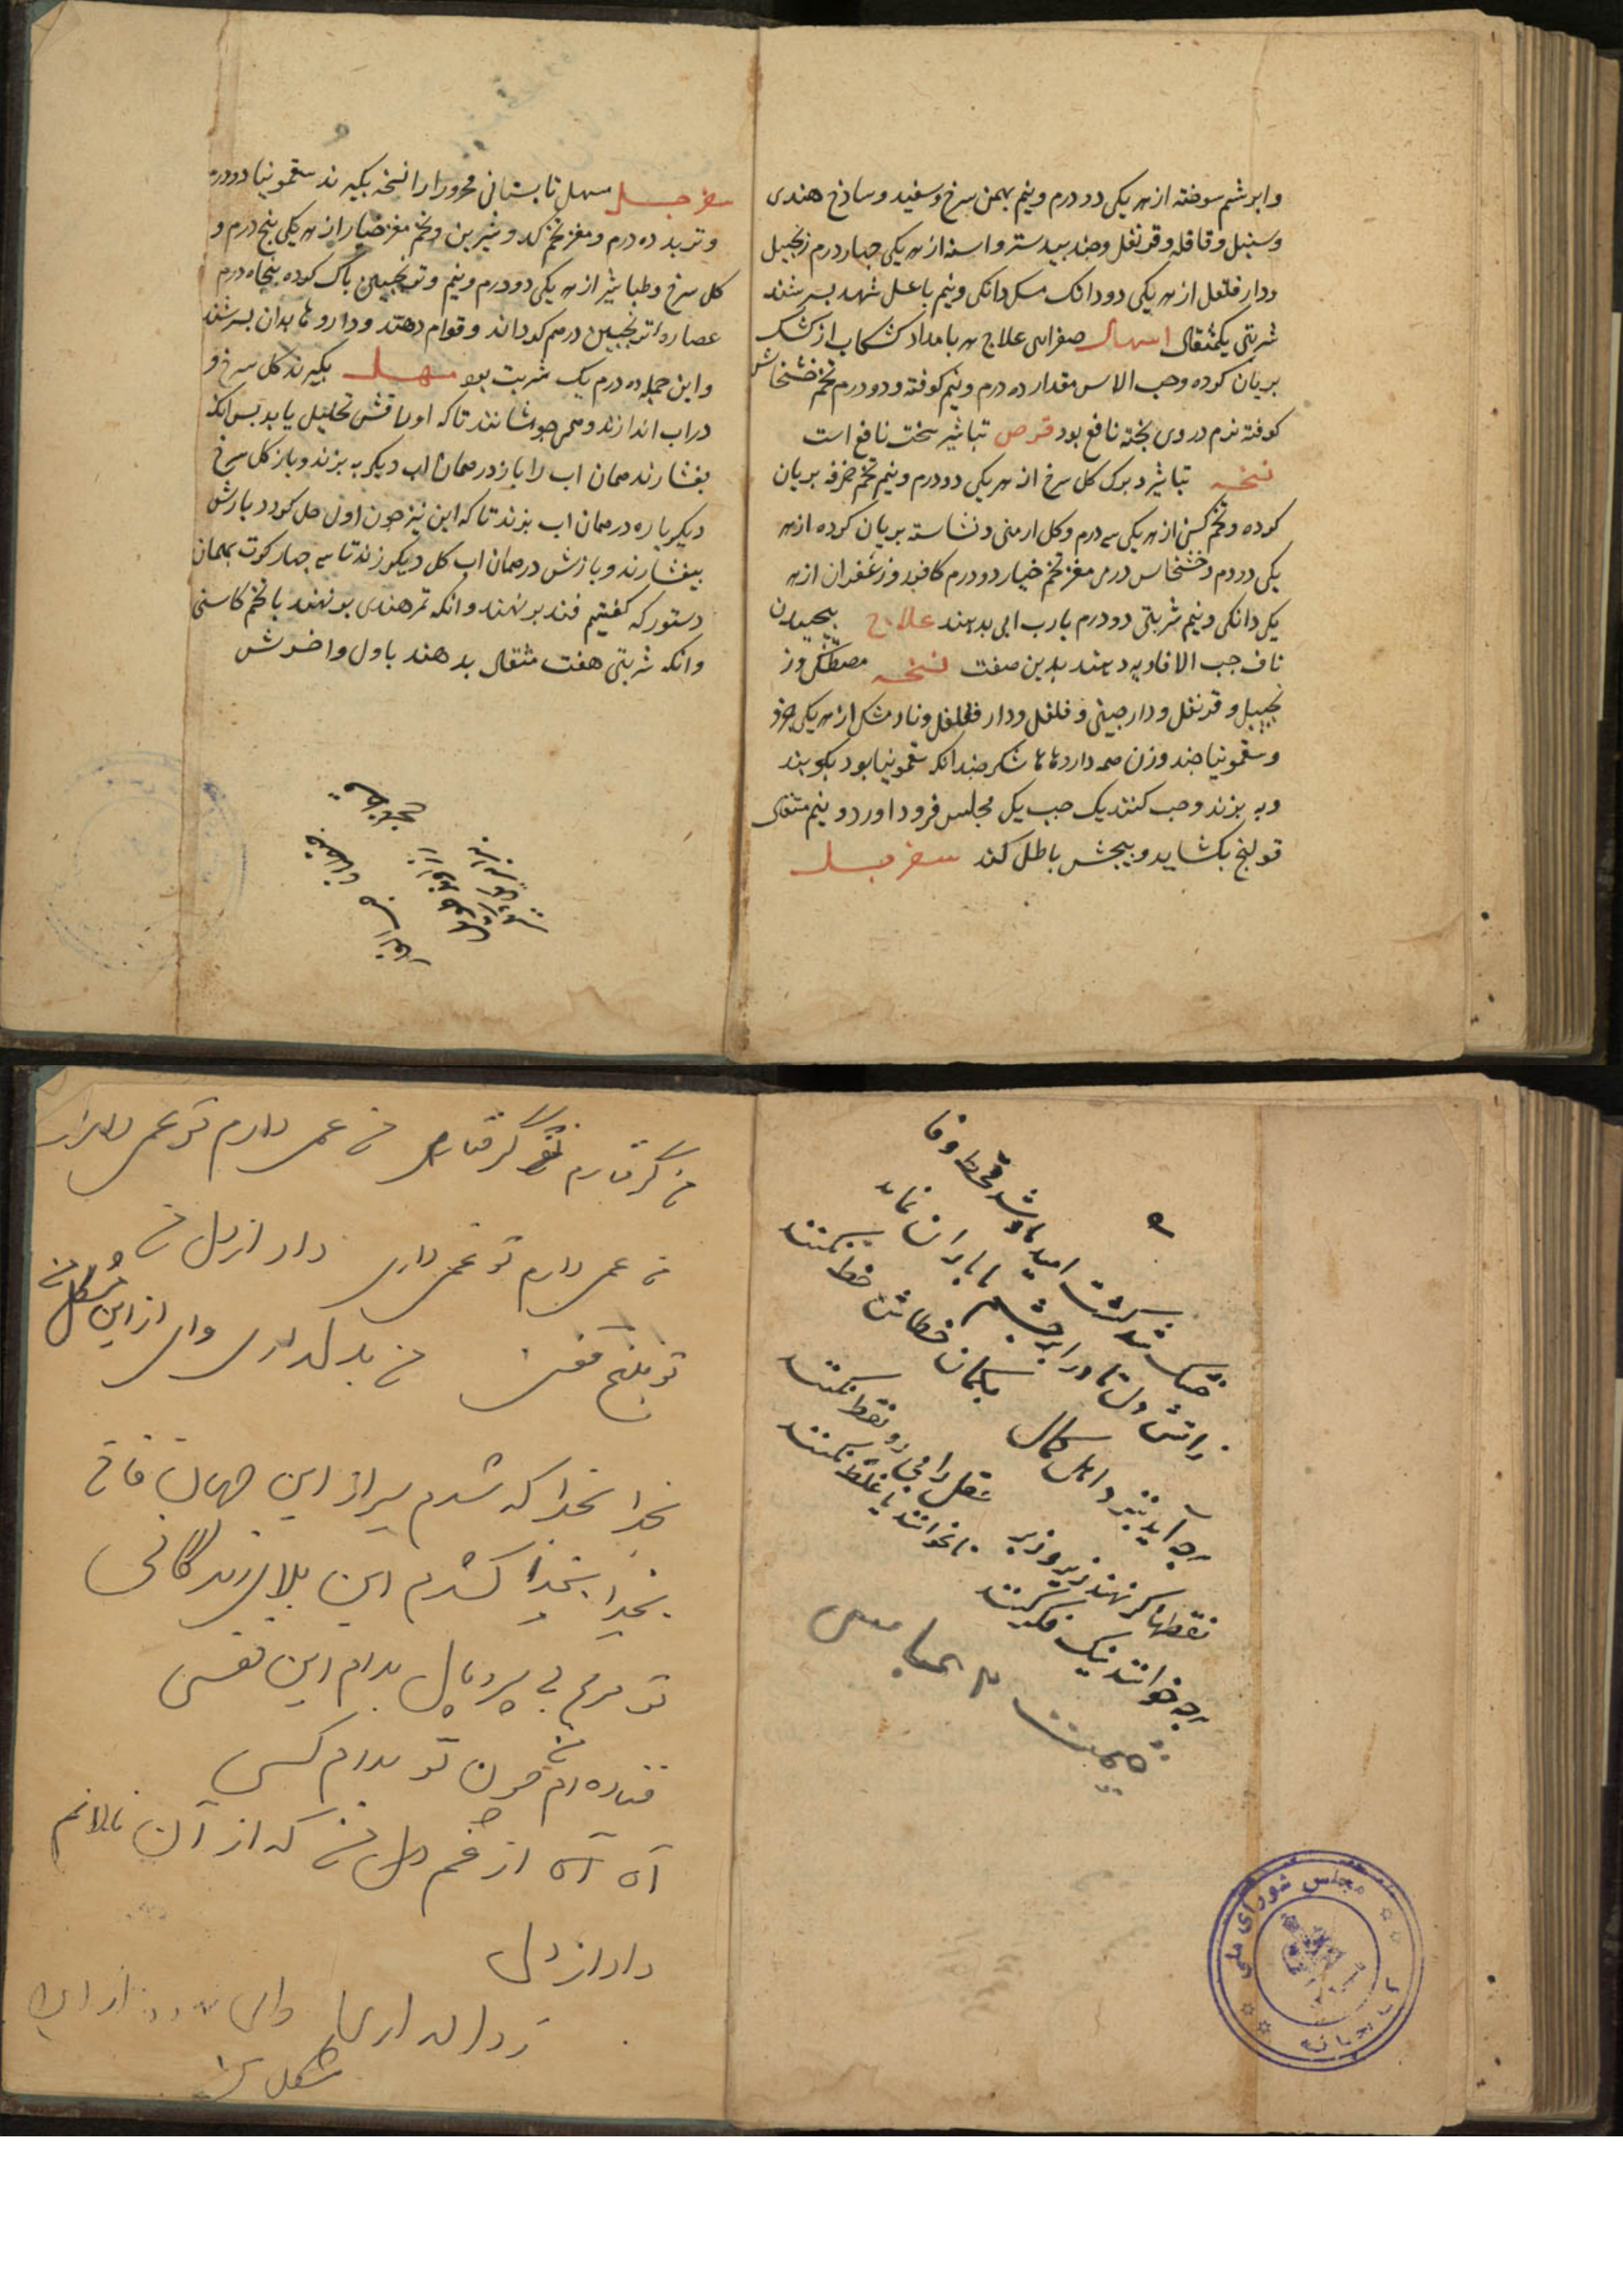 وابرشم سوخته از هر یکی دو درم ونیم بهمن سرخ وسفید وساذخ هندی
وسنبل وقاقله وقرنفل وجند بیدستر واسنه از هر یکی چهار درم زنجبیل
ودار فلفل از هر یکی دو دانک مسک دانکی ونیم باعسل شهد بسرشند
شربتی یکمثقال اسهال صفرایی علاج هر بامداد کشکاب از کشک
بریان کرده وحب الاس مقدار ده درم ونیم کوفته و دو درم تخم خشخاش
کوفته نرم در وی پخته نافع بود قرص تباشیر سخت نافع است
نسخه تباشیر وبرک کل سرخ از هر یکی دو درم ونیم تخم خرفه بریان
کرده وتخم کسنی از هر یکی سه درم وکل ارمنی ونشاسته بریان کرده از هر
یکی دو درم وخشخاس درمی مغز تخم خیار دو درم کافور وزعفران از هر
یکی دانکی ونیم شربتی دو درم بارب ابی بدهند علاج پیچیدن
ناف حب الافاویه دهند بدین صفت نسخه مصطکی وز
نجبیل و قرنفل ودارچینی وفلفل ودار فلفل ونارمشک از هر یکی جزو
وسقمونیا چند وزن همه داروها شکر چندانکه سقمونیا بود بکوبند
وبه بزند وحب کنند یک حب یکی مجلس فرود اورد دو نیم مثقال
قولنج بکشاید وپیچش باطل کند سفرجلی
سفرجلی مسهل تابستانی محرورا را نسخه بکیرند سقمونیا دو درم
وتربد ده درم ومغز تخم کدو شیرین وتخم مغز خیار از هر یکی پنج درم و
کل سرخ وطباشیر از هر یکی دو درم ونیم وترنجبین پاک کرده پنجاه درم
عصاره ترنجبین درهم کرداند وقوام دهند وداروها بدان بسرشند
واین جمله ده درم یک شربت بود مسهل بکیرند کل سرخ و
دراب اندازند وهمی جوشانند تاکه اوراقش تحلیل یابد بس انکه
بفشارند همان اب را باز در همان اب دیکر به بزند وباز کل سرخ
دیکر باره در همان اب بزند تا که این نیز چون اول حل کردد بازش
بیفشارند وبازش در همان اب کل دیکر زند تا سه چهار کرت بهمان
دستور که کفتیم قند بر نهند وانکه تمر هندی بر نهند باتخم کاسنی
وانکه شربتی هفت مثقال بدهند باول واخرش
خشک شد کشت امید ما و شد قحط وفا
زاتش دل تا در ابر چشم ما باران نماند
هرچه آید بنزد اهل کمال
بکمان خطاش خط نکنند
نقطها کر نهند زیر وزبر
عقل را محو رو نقط نکنند
هرچه خوانند نیک فکر کنند
تا نخوانند یا غلط نکنند
قیمت
مجلس شورای ملی
کتابخانه
من گرفتارم تو گرفتاری من غمی دارم تو غمی داری
من غمی دارم تو غمی داری داد از دل من
تو بکنج قفس من بد کداری وای از این مشکل من
بخدا بخدا که شدم سیر از این جهان فانی
بخدا بخدا کشدم این بلای زندگانی
تو مرغ بی پر وبال بدام این قفسی
فتاده ام من چون تو بدام کسی
آه آه از غم دل من که از آن نالانم
داد از دل
وای از این
مشکل من